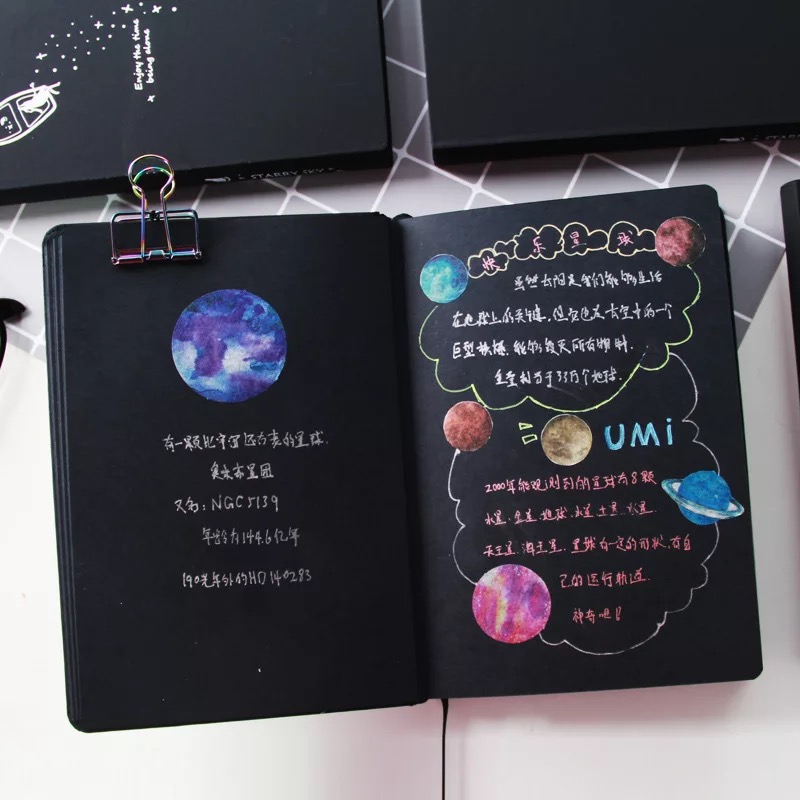 Enjoy the time
being alone
STARRY SKY
有一颗比宇宙还古老的星球.
又名:NGC5139
年龄为144.6亿年
190光年外的HD140283
快乐星球
虽然太阳是我们能够生活
在地球上的关键,但它也是太空中的一个
巨型 能够毁灭所有物料.
质量相当于33万个地球.
UMi
2000年能观测到的星球有8颗
水星.金星.地球.木星 土星.火星.
天王星.海王星.星球有一定的形状,有自
己的运行轨道.
神奇吧!!